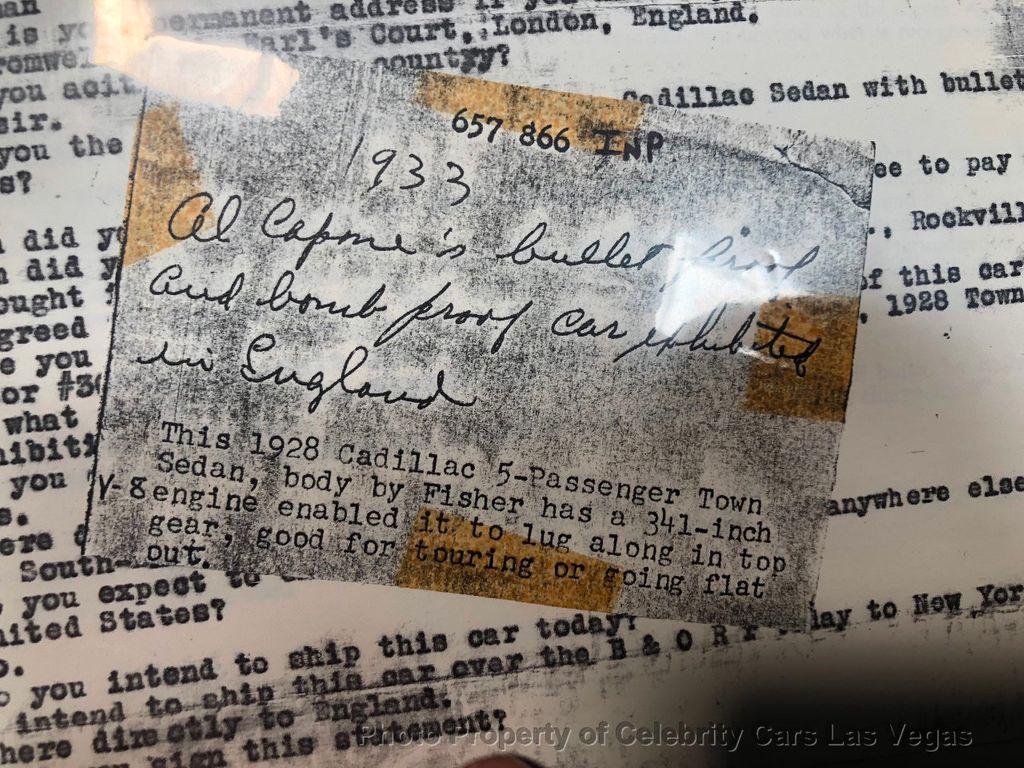 permanent address if you
is yo Earl's Court, London, England.
country?
you acit Cadillac Sedan with bullet
sir.
you the ee to pay
s?
did yo ., Rockvill
did y of this car
ought 1928 Town
greed
e you
or #3
what
ibiti
you anywhere else
s.
ere
South-
you expect to
ited States?
o.
you intend to ship this car today?
intend to ship this car over the B & O R R today to New Yor
here directly to England.
sign this statement?
657 866 INP
933
Al Capone's bullet proof
and bomb proof car exhibited
in England
This 1928 Cadillac 5-Passenger Town
Sedan, body by Fisher has a 341-inch
V-8 engine enabled it to lug along in top
gear, good for touring or going flat
out.
Photo Property of Celebrity Cars Las Vegas